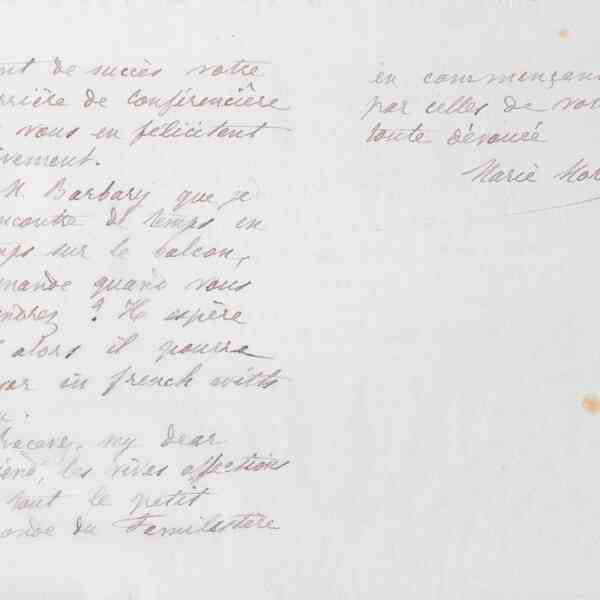 de succès votre
de conférencière
vous en félicitent
vivement.
M. Barbary que je
rencontre de temps en
sur le balcon,
demande quand vous
viendrez ? Il espère
alors il pourra
in french with
my dear
les vives affections
tout le petit
monde du Familistère
en commençant
par celles de
toute dévouée
Marie